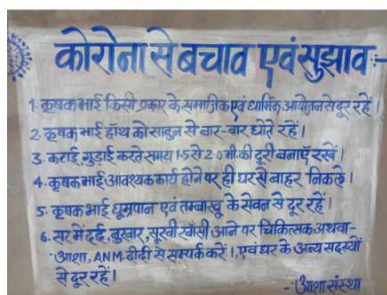 कोरोना से बचाव एवं सुझाव -
1. कृषक भाई किसी प्रकार के समाजिक एवं धार्मिक आयोजन से दूर रहें।
2. कृषक भाई हाँथ को साबुन से बार-बार धोते रहें।
3. कटाई, गुड़ाई करते समय 1.5 से 2.0 मी.की दूरी बनाएँ रखें।
4. कृषक भाई आवश्यक कार्य होने पर ही घर से बाहर निकले।
5. कृषक भाई धूम्रपान एवं तम्बाखू के सेवन से दूर रहें।
6. सर में दर्द, बुखार, सूखी खाँसी आने पर चिकित्सक अथवा -
आशा, ANM. दीदी से सम्पर्क करें।, एवं घर के अन्य सदस्यों
से दूर रहें।
- आशा संस्था